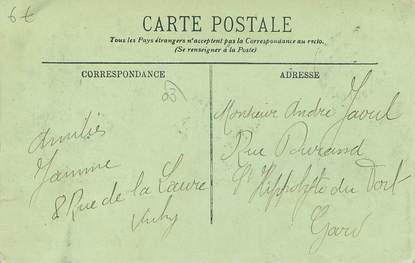 6€
CARTE POSTALE
Tous les Pays étrangers n'acceptent pas la Correspondance au recto.
(Se renseigner à la Poste)
CORRESPONDANCE
ADRESSE
03
Amitiés
8 Rue de la Laure
Vichy
Monsieur André Jaoul
Rue Durand
St Hippolyte du Fort
Gard